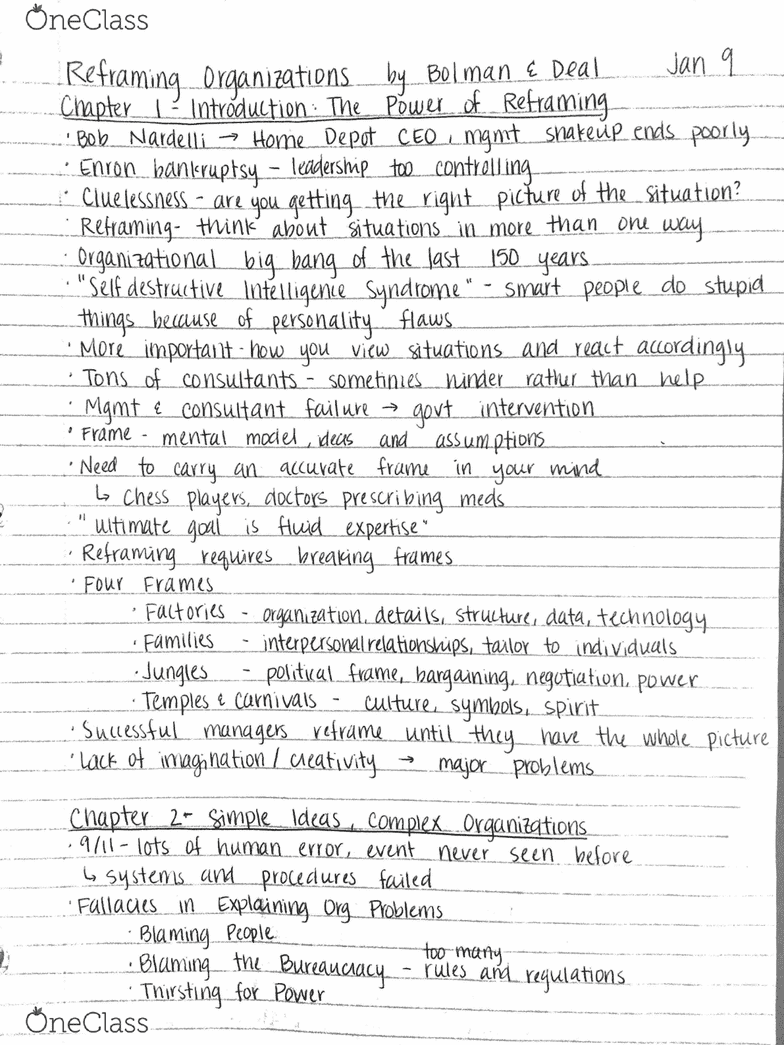 OneClass
Reframing Organizations by Bolman & Deal Jan 9
Chapter 1 - Introduction: The Power of Reframing
· Bob Nardelli → Home Depot CEO, mgmt shakeup ends poorly
· Enron bankruptsy - leadership too controlling
· Cluelessness - are you getting the right picture of the situation?
· Reframing - think about situations in more than one way
· Organizational big bang of the last 150 years
· "Self destructive Intelligence Syndrome" - smart people do stupid
things because of personality flaws
· More important - how you view situations and react accordingly
· Tons of consultants - sometimes hinder rather than help
· Mgmt & consultant failure → govt intervention
· Frame - mental model, ideas and assumptions
· Need to carry an accurate frame in your mind
↳ Chess players, doctors prescribing meds
· "ultimate goal is fluid expertise"
· Reframing requires breaking frames
· Four Frames
· Factories - organization, details, structure, data, technology
· Families - interpersonal relationships, tailor to individuals
· Jungles - political frame, bargaining, negotiation, power
· Temples & Carnivals - culture, symbols, spirit
· Successful managers reframe until they have the whole picture
· Lack of imagination / creativity → major problems
Chapter 2 - Simple Ideas, Complex Organizations
· 9/11 - lots of human error, event never seen before
↳ systems and procedures failed
· Fallacies in Explaining Org Problems
· Blaming People
too many
· Blaming the Bureaucracy - rules and regulations
· Thirsting for Power
OneClass